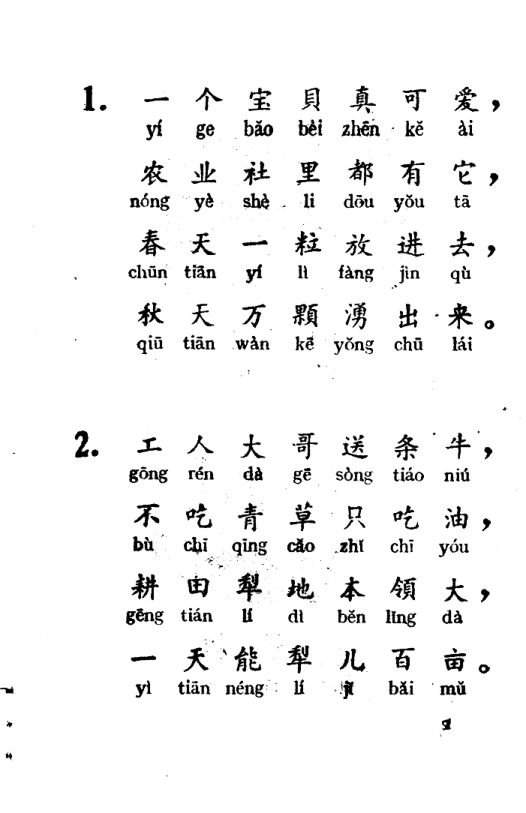 1. 一个宝貝真可爱，
yí ge bǎo bèi zhēn kě ài
农业社里都有它，
nóng yè shè li dōu yǒu tā
春天一粒放进去，
chūn tiān yí lì fàng jìn qù
秋天万顆湧出来。
qiū tiān wàn kē yǒng chū lái
2. 工人大哥送条牛，
gōng rén dà gē sòng tiáo niú
不吃青草只吃油，
bù chī qīng cǎo zhǐ chī yóu
耕由犁地本領大，
gēng tián lí dì běn lǐng dà
一天能犁儿百亩。
yì tiān néng lí jǐ bǎi mǔ